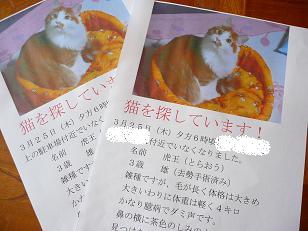 猫を探しています！
３月２５日（木）夕方６時
上の駐車場付近でいなくな
名前　虎王（
３歳　雄（
雑種ですが
大きいわり
かなり
鼻の横
見つ
猫を探しています！
３月２５日（木）夕方６時
付近でいなくなりました。
名前　虎王（とらおう）
３歳　雄（去勢手術済み）
雑種ですが、毛が長く体格は大きめ
大きいわりに体重は軽く４キロ
かなり臆病でダミ声です。
鼻の横に茶色のしみのよ
見つ